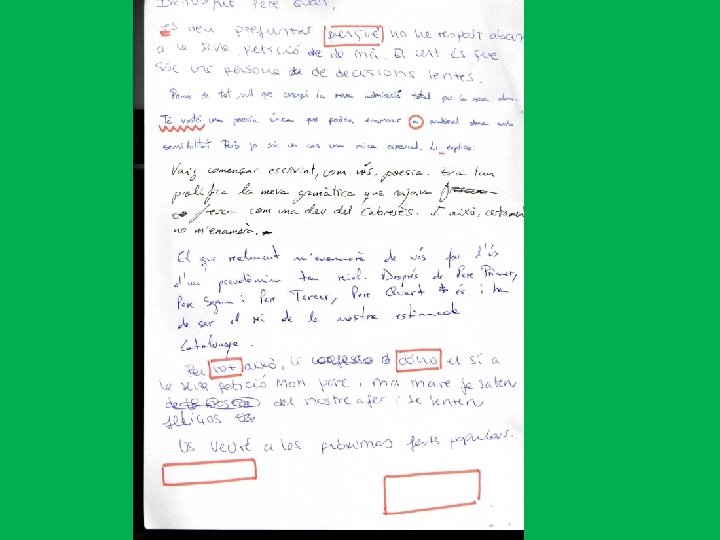 Benvolgut Pere Quart,
es deu preguntar perquè no he respost abans
a la seva petició de de mà. El cert és que
sóc una persona de de decisions lentes.
Primer de tot, vull que conegui la meva admiració total per la seva obra.
Té vostè una poesia única que podria enamorar a qualsevol dona amb
sensibilitat. Però jo sóc un cas una mica especial. Li explico.
Vaig començar escrivint, com vós, poesia. Era tan
prolífica la meva gramàtica que rajava
fresca com una deu del Cabrerès. I això, certament
no m'enamorà.
El que realment m'enamorà de vós fou l'ús
d'un pseudònim tan reial. Després de Pere Primer,
Pere Segon i Pere Tercer, Pere Quart és i ha
de ser el rei de la nostra estimada
Catalunya.
Per tot això, li confesso dóno el sí a
la seva petició. Mon pare i ma mare ja saben
del nostre afer i se senten
feliços
Us veuré a les pròximes festes populars.